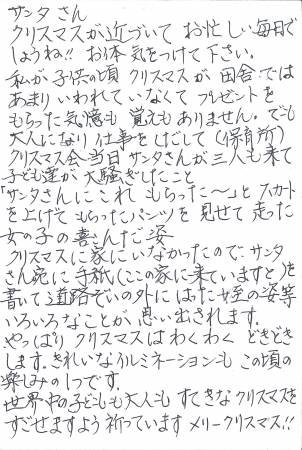 サンタさん
クリスマスが近づいて お忙しい毎日で
しょうね!! お体 気をつけて下さい。
私が子供の頃 クリスマスが 田舎では
あまり いわれていなくて プレゼントを
もらった気憶も 覚えもありません。でも
大人になり 仕事をしだして(保育所)
クリスマス会当日 サンタさんが三人も来て
子ども達が大騒ぎしたこと
「サンタさんにこれ もらった〜」と スカート
を上げて もらったパンツを見せて走った
女の子の喜んだ姿
クリスマスに家にいなかったので サンタ
さん宛に手紙(ここの家に来ていますと)を
書いて道路ぞいの外にはった姪の姿等
いろいろなことが、思い出されます。
やっぱり クリスマスは わくわく どきどき
します。きれいなイルミネーションも この頃の
楽しみの1つです。
世界中の子どもも大人も すてきなクリスマスを
すごせますよう祈っています メリークリスマス!!